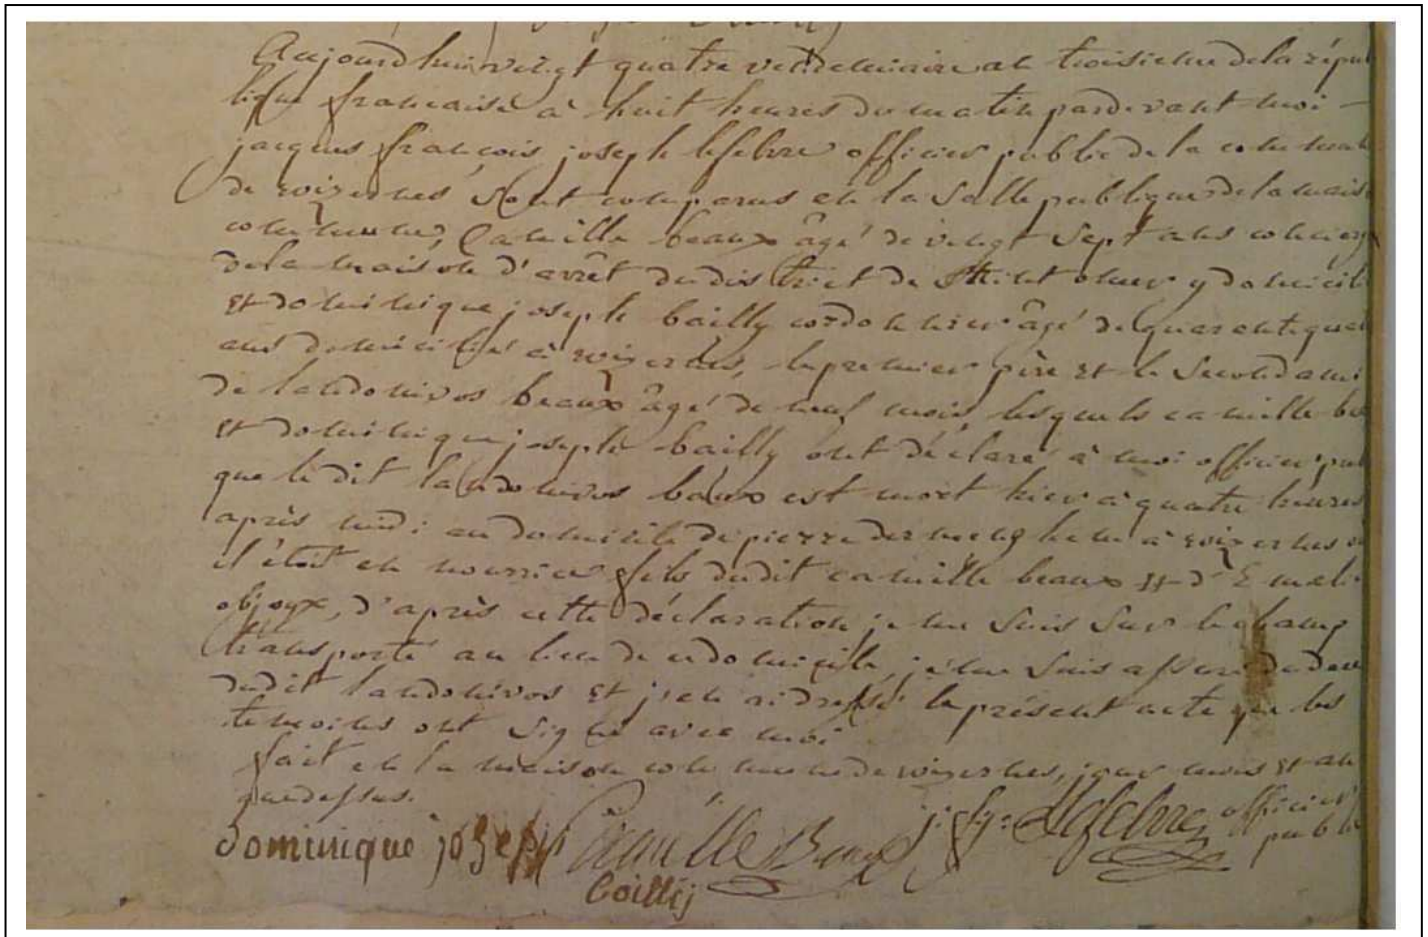 Aujourdhui vingt quatre vendemiaire an troisieme de la répu
blique francaise à huit heures du matin pardevant moi –
jacques françois joseph lefebvre officier public de la commun
de wizernes Sont comparus en la Salle publique de la mais
commune, Camille beaux âgé de vingt Sept ans concierg
de la maison d'arrêt du district de omer y domicili
et dominique joseph bailly cordonnier âgé de quarante qua
ans domicilié à wizernes, le premier père et le Second ami
de beaux âgé de neuf mois, lesquels camille be
et dominique joseph bailly ont déclaré à moi officier pu
que le dit beaux est mort hier à quatre heures
après midi au domicile de pierre à wizernes o
il étoit en nourrice fils dudit camille beaux et d'Emeli
objoyx, d'après cette déclaration je me Suis Sur le champ
transporté au lieu de ce domicile, je me Suis assuré du dec
dudit et j'en ai dressé le présent acte que les
temoins ont Signé avec moi
fait en la maison commune de wizernes, jour mois et an
que dessus.
dominique joseph Camille Beaux j. f. j. Lefebvre officier
public
bailly